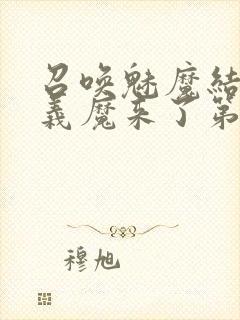 召唤魅魔结
义魔来了第
穆旭